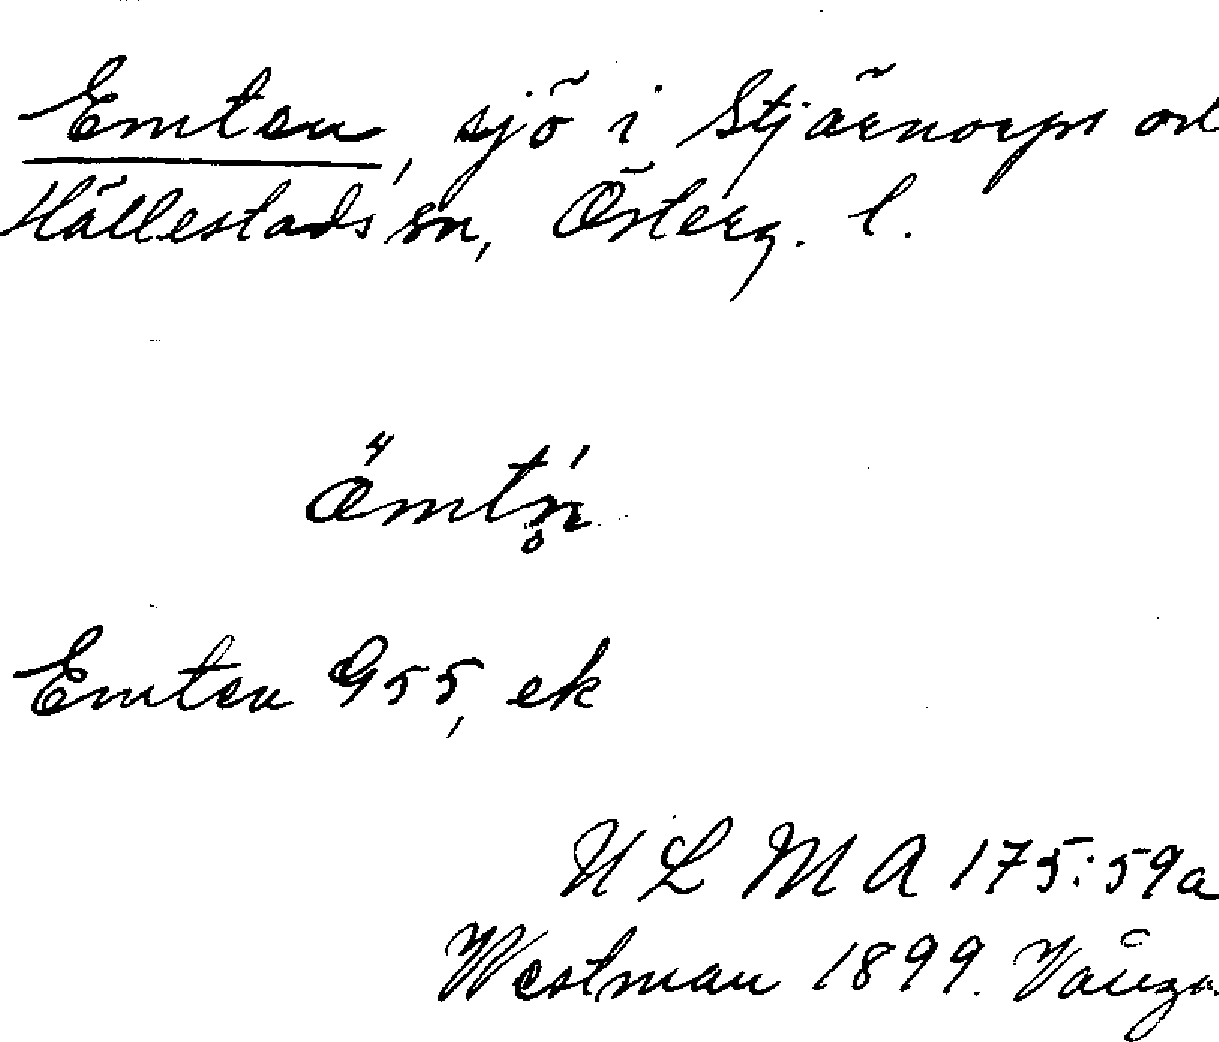 Emten, sjö i Stjärnorps och
Hällestads sn, Österg. l.
ämtn̥
Emten G55, ek
ULMA 175:59a
Westman 1899. Vånga